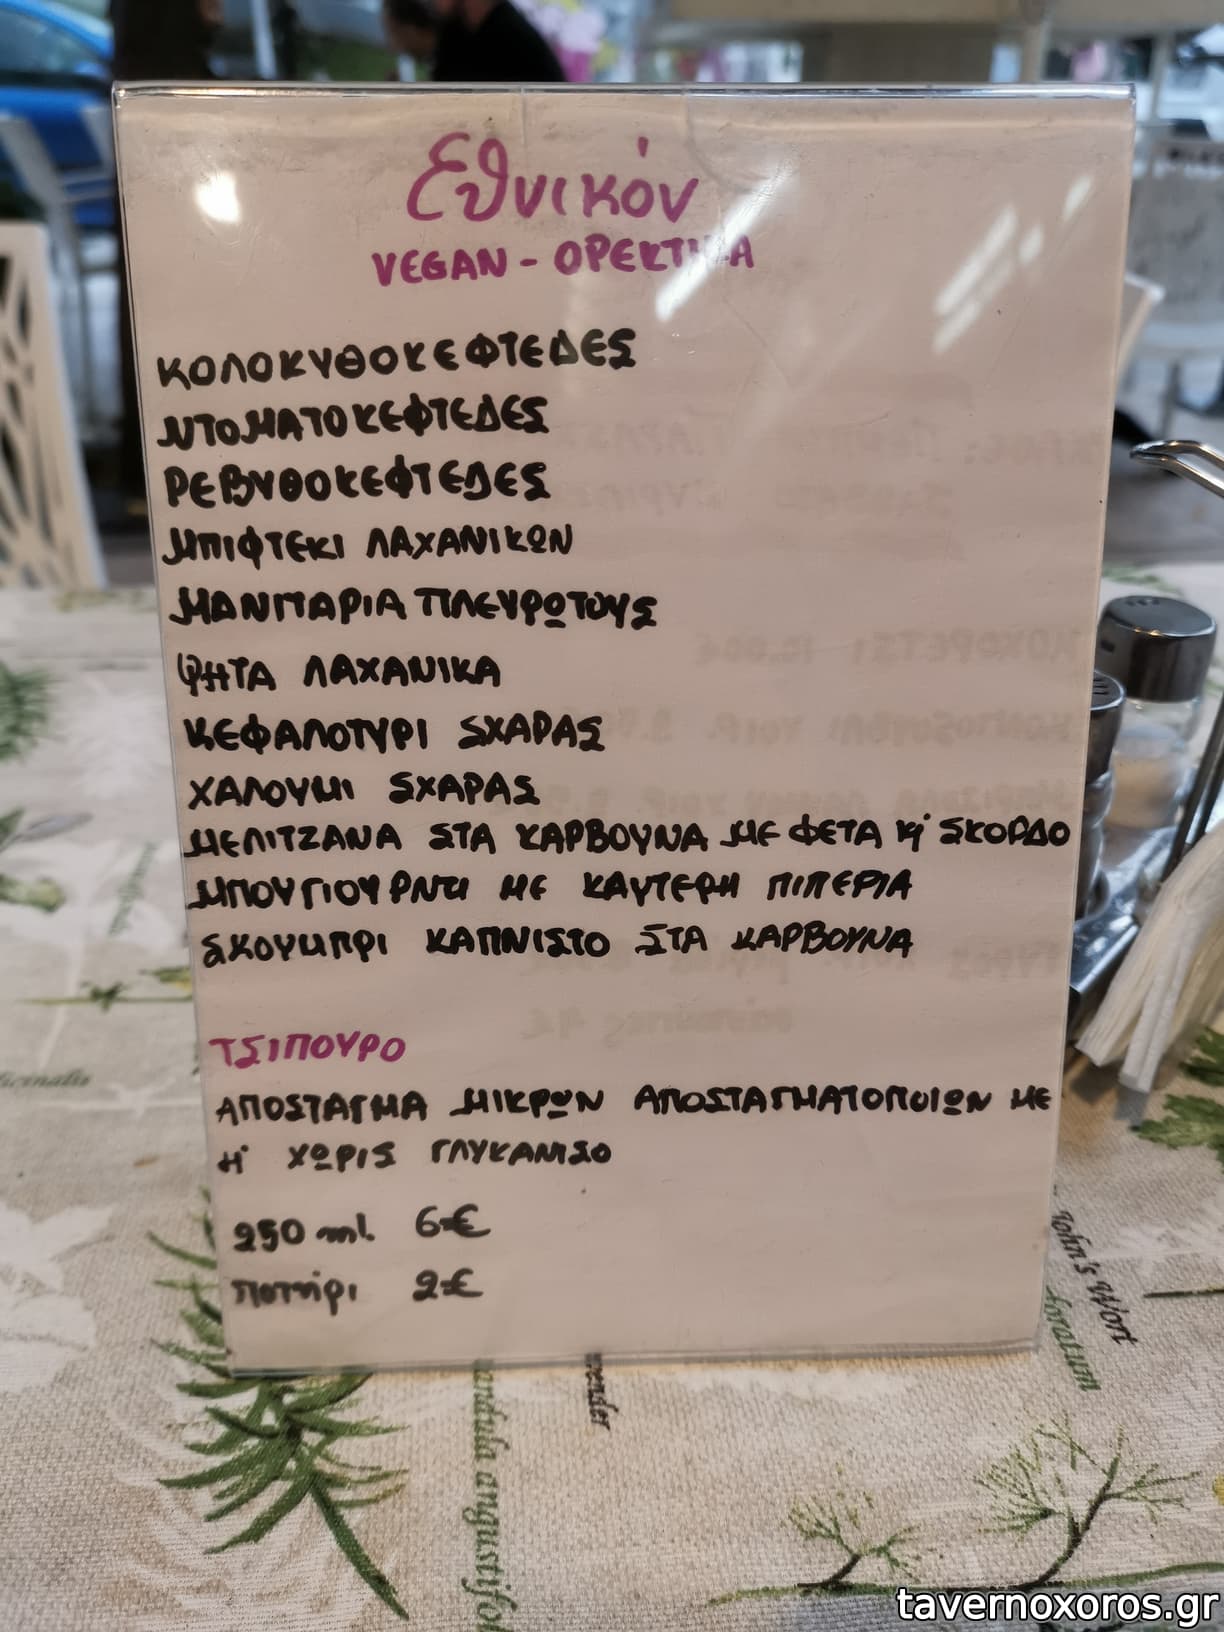 Εθνικόν
VEGAN - ΟΡΕΚΤΙΚΑ
ΚΟΛΟΚΥΘΟΚΕΦΤΕΔΕΣ
ΝΤΟΜΑΤΟΚΕΦΤΕΔΕΣ
ΡΕΒΥΘΟΚΕΦΤΕΔΕΣ
ΜΠΙΦΤΕΚΙ ΛΑΧΑΝΙΚΩΝ
ΜΑΝΙΤΑΡΙΑ ΠΛΕΥΡΩΤΟΥΣ
ΨΗΤΑ ΛΑΧΑΝΙΚΑ
ΚΕΦΑΛΟΤΥΡΙ ΣΧΑΡΑΣ
ΧΑΛΟΥΜΙ ΣΧΑΡΑΣ
ΜΕΛΙΤΖΑΝΑ ΣΤΑ ΚΑΡΒΟΥΝΑ ΜΕ ΦΕΤΑ Κι' ΣΚΟΡΔΟ
ΜΠΟΥΓΙΟΥΡΝΤΙ ΜΕ ΚΑΥΤΕΡΗ ΠΙΠΕΡΙΑ
ΣΚΟΥΜΠΡΙ ΚΑΠΝΙΣΤΟ ΣΤΑ ΚΑΡΒΟΥΝΑ
ΤΣΙΠΟΥΡΟ
ΑΠΟΣΤΑΓΜΑ ΜΙΚΡΩΝ ΑΠΟΣΤΑΓΜΑΤΟΠΟΙΩΝ ΜΕ
Η' ΧΩΡΙΣ ΓΛΥΚΑΝΙΣΟ
250 ml. 6€
ποτήρι 2€
John's Wort
tavernoxoros.gr